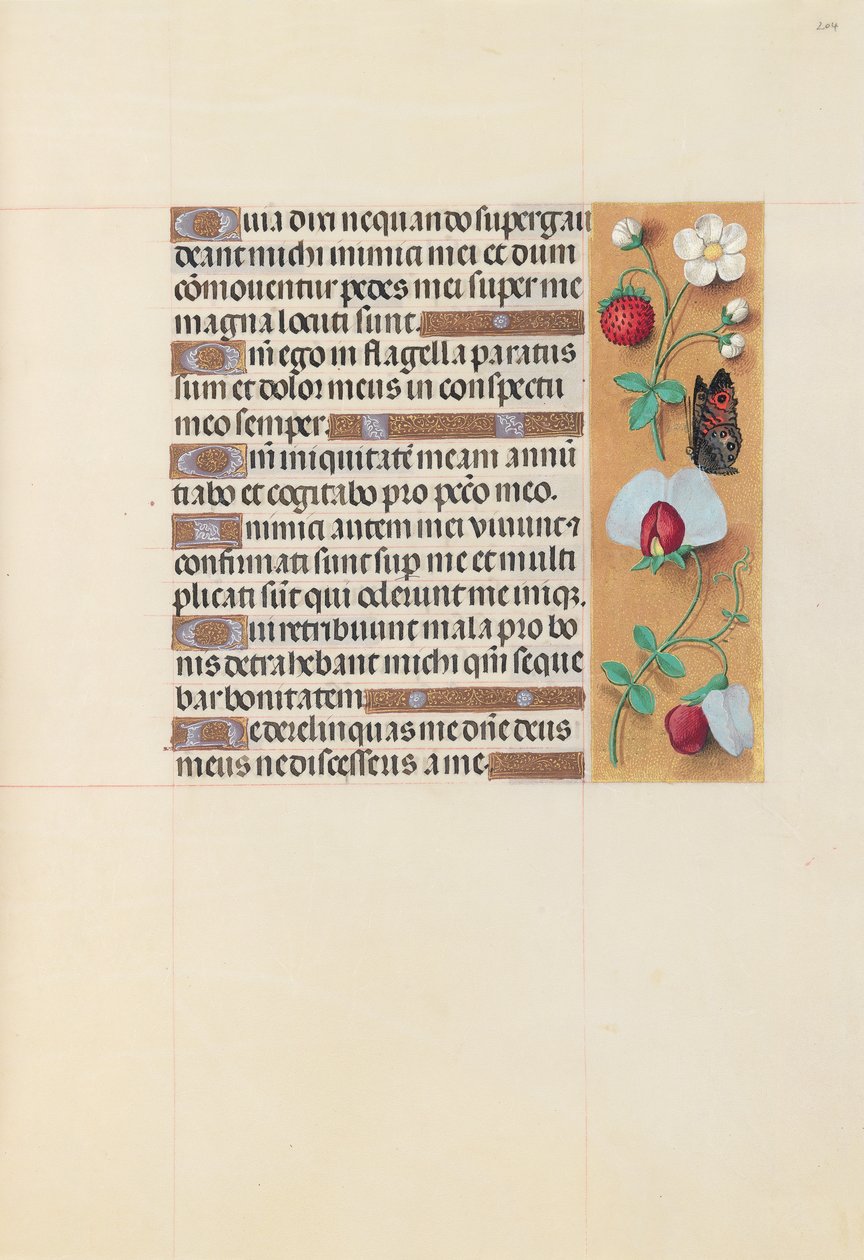 204
Quia dixi nequando supergau
deant michi inimici mei et dum
cōmoventur pedes mei super me
magna locuti sunt.
Qm̄ ego in flagella paratus
sum et dolor meus in conspectu
meo semper.
Qm̄ iniquitatē meam annū
tiabo et cogitabo pro pcc̄o meo.
Inimici autem mei vivunt ⁊
confirmati sunt sup̲ me et multi
plicati sūt qui oderunt me iniqꝫ.
Qui retribuunt mala pro bo
nis detrahebant michi qm̄ seque
bar bonitatem
Ne derelinquas me dn̄e deus
meus ne discesseris a me.